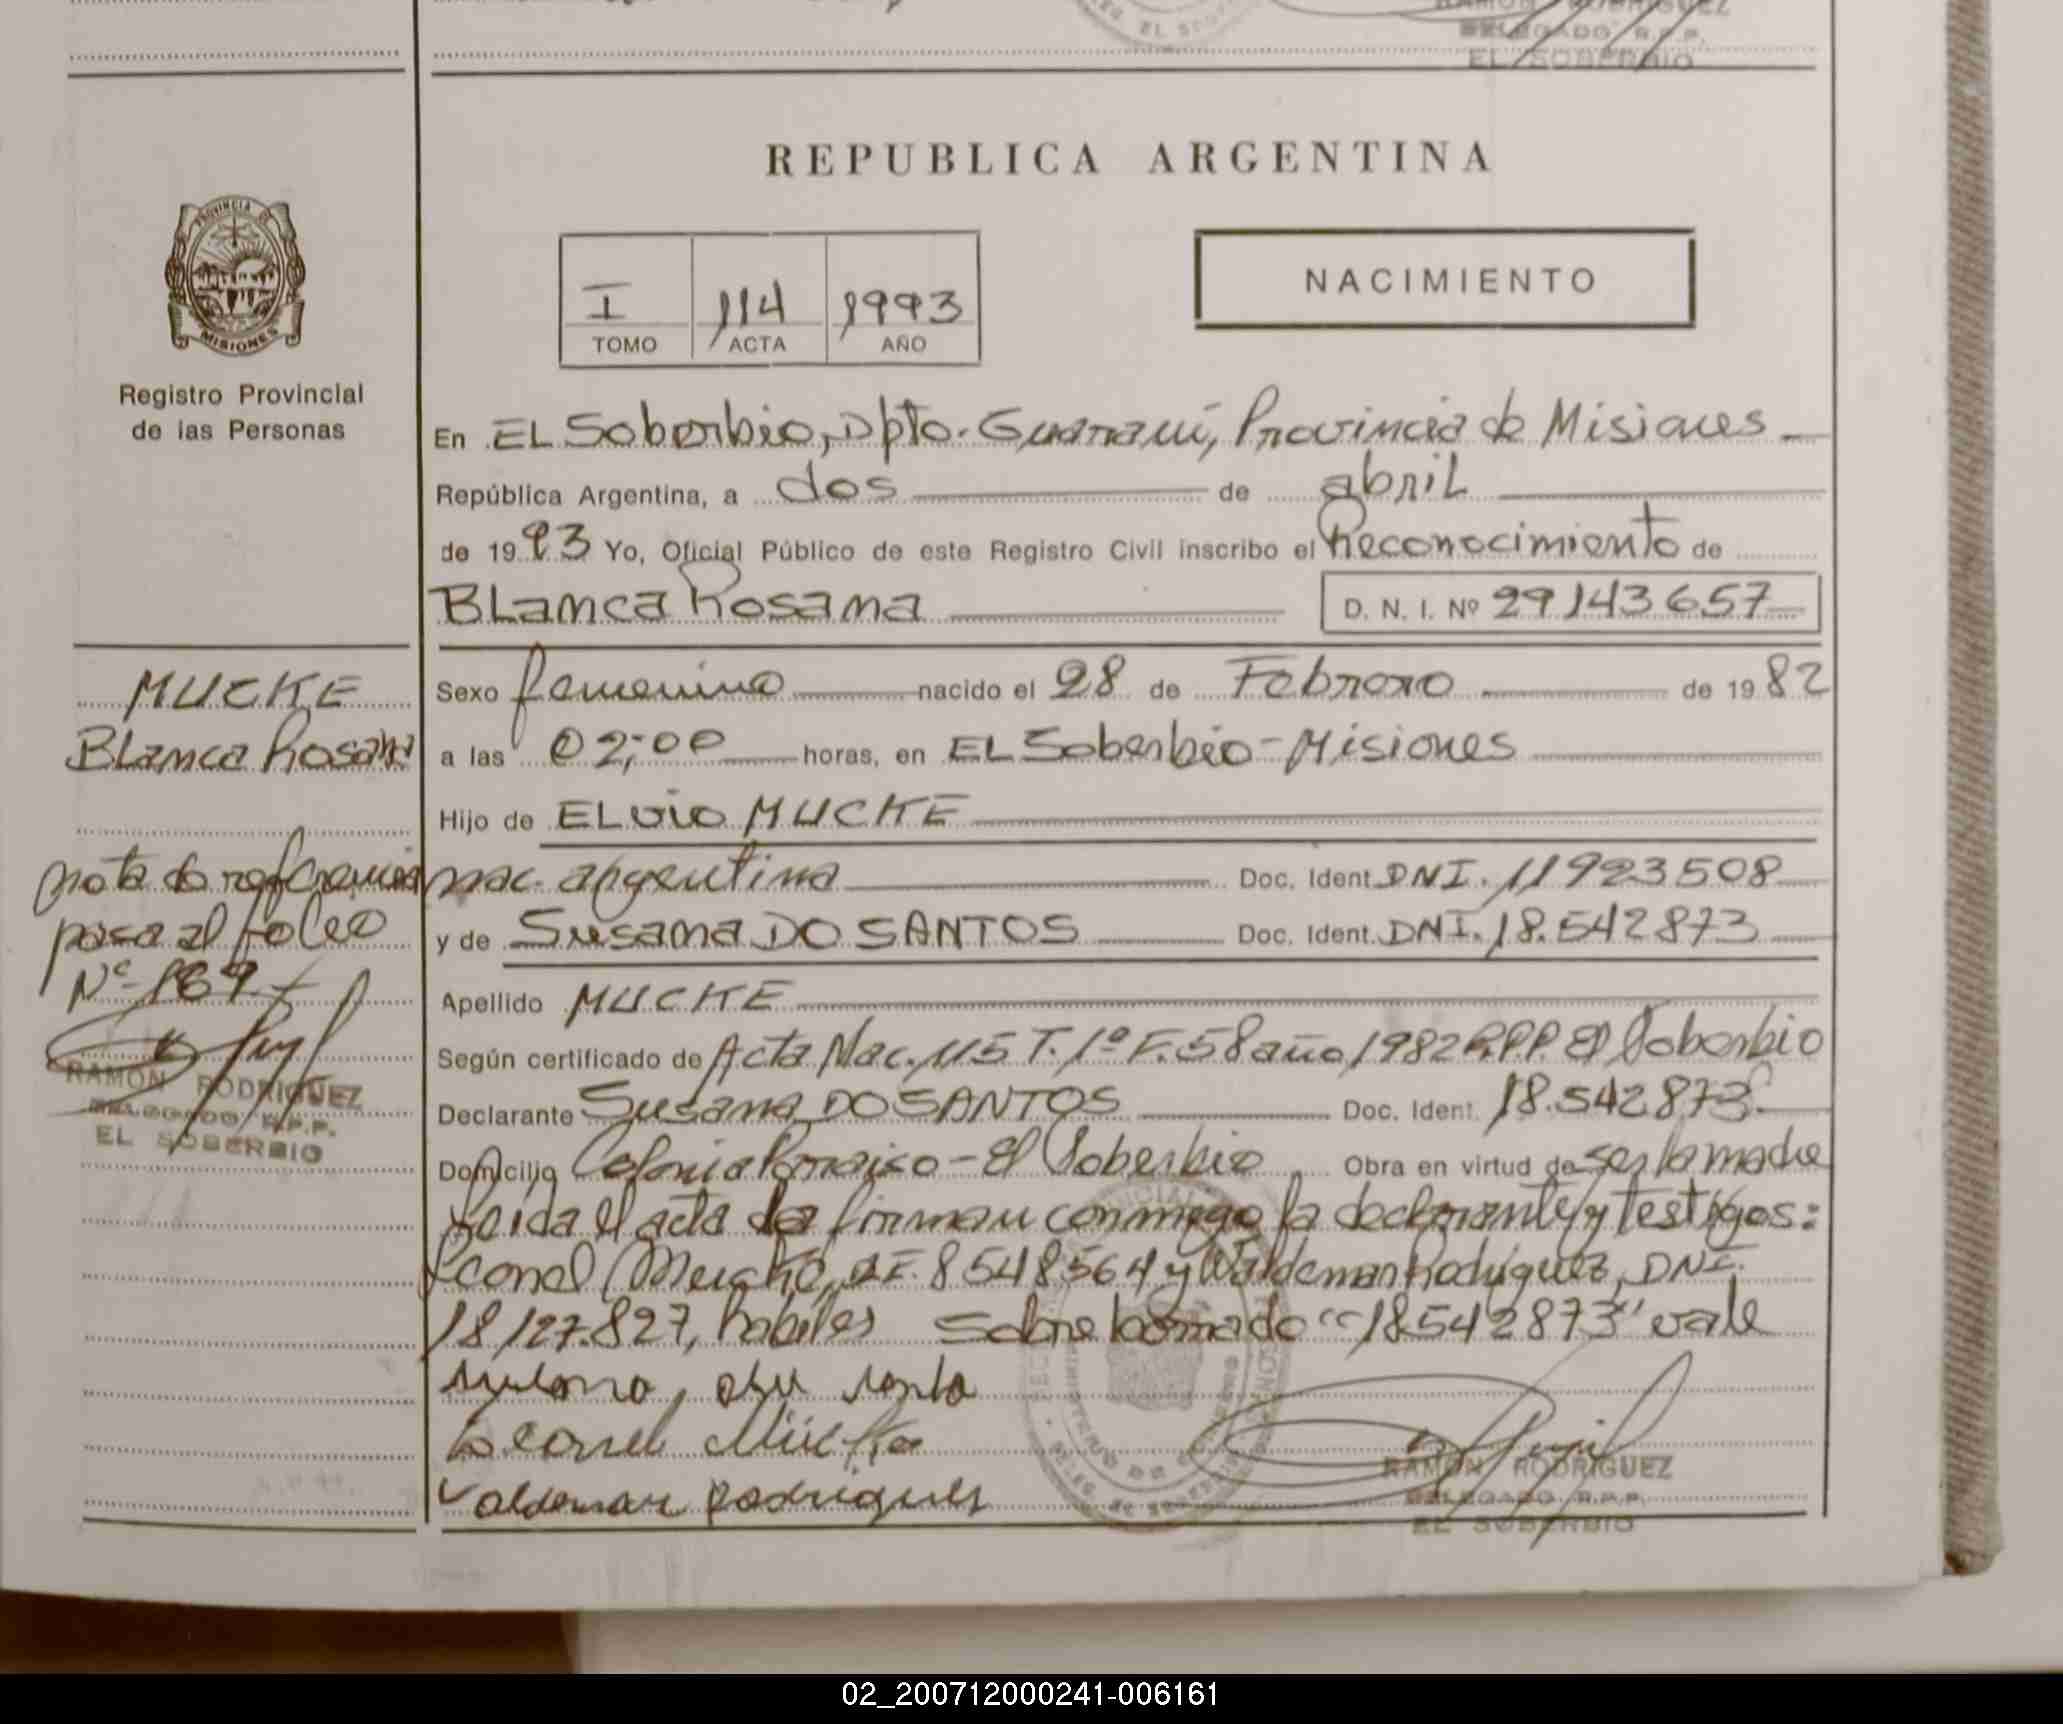 RAMON RODRIGUEZ
DELEGADO R.P.P.
EL SOBERBIO
REPUBLICA ARGENTINA
PROVINCIA DE
MISIONES
Registro Provincial
de las Personas
I 114 1993
TOMO ACTA AÑO
NACIMIENTO
En EL Soberbio, Dpto. Guaraní, Provincia de Misiones
República Argentina, a dos de abril
de 1993 Yo, Oficial Público de este Registro Civil inscribo el Reconocimiento de
BLanca Rosana D. N. I. Nº 29143657
MUCKE
Blanca Rosana
nota de referencia
pasa al folio
Nº 169
RAMON RODRIGUEZ
DELEGADO R.P.P.
EL SOBERBIO
Sexo femenino nacido el 28 de Febrero de 1982
a las 02:00 horas, en EL Soberbio - Misiones
Hijo de ELvio MUCKE
nac. argentina Doc. Ident. DNI. 11923508
y de Susana DO SANTOS Doc. Ident. DNI. 18.542873
Apellido MUCKE
Según certificado de Acta Nac. 115 T. 1º F. 58 año 1982 R.P.P. El Soberbio
Declarante Susana DO SANTOS Doc. Ident. 18.542873
Domicilio Colonia Paraiso - El Soberbio Obra en virtud de ser la madre
Leida el acta la firman conmigo la declarante y testigos:
Leonel Mucke, DNI. 8548564 y Waldemar Rodriguez, DNI.
18.127.827, habiles Sobre borrado "18.542873" vale
Leonel Mücke
Valdemar Rodrigues
RAMON RODRIGUEZ
DELEGADO R.P.P.
EL SOBERBIO
02_200712000241-006161